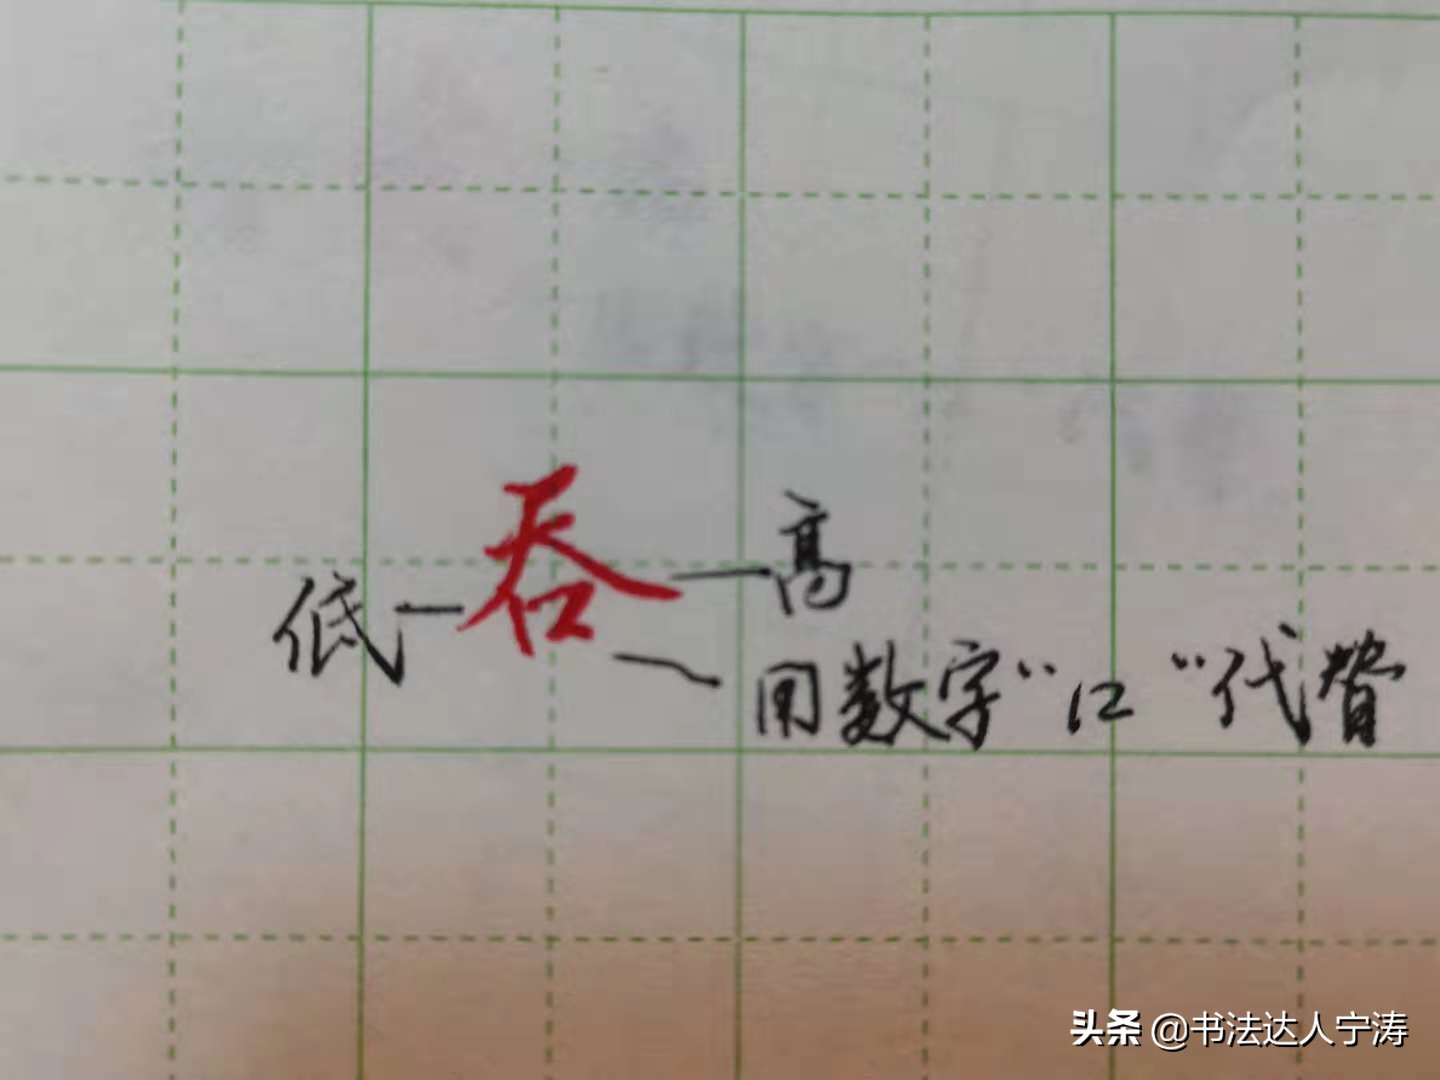 吞
低
高
用数字“12”代替
头条 @书法达人宁涛